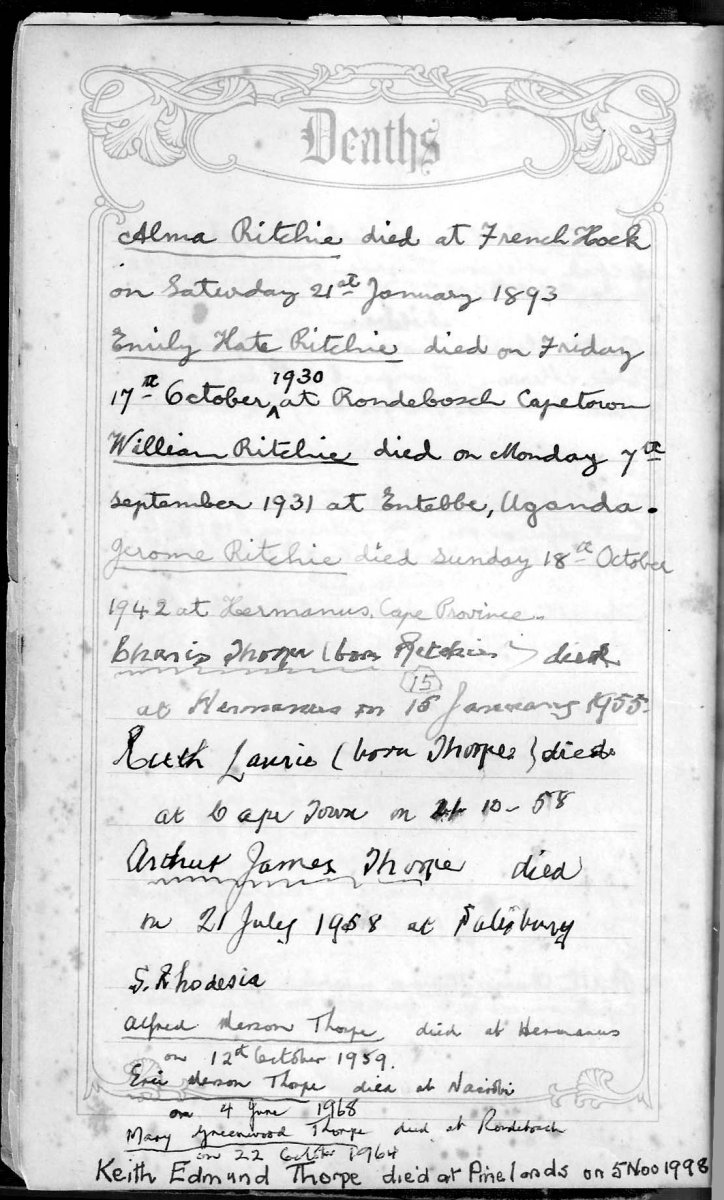 Deaths
Alma Ritchie died at French Hoek
on Saturday 21st January 1893
Emily Kate Ritchie died on Friday
1930
17th October, ^ at Rondebosch Capetown
William Ritchie died on Monday 7th
September 1931 at Entebbe, Uganda.
Jerome Ritchie died Sunday 18th October
1942 at Hermanus, Cape Province.
Charis Thorpe (born Ritchie) died
15
at Hermanus on 15 January 1955.
Ruth Laurie (born Thorpe) died
at Cape Town on 10-58
Arthur James Thorpe died
on 21 July 1958 at Salisbury
S. Rhodesia
Alfred Merson Thorpe died at Hermanus
on 12th October 1959.
Eric Merson Thorpe died at Nairobi
on 4 June 1968
Mary Greenwood Thorpe died at Rondebosch
on 22 October 1964
Keith Edmund Thorpe died at Pinelands on 5 Nov 1998